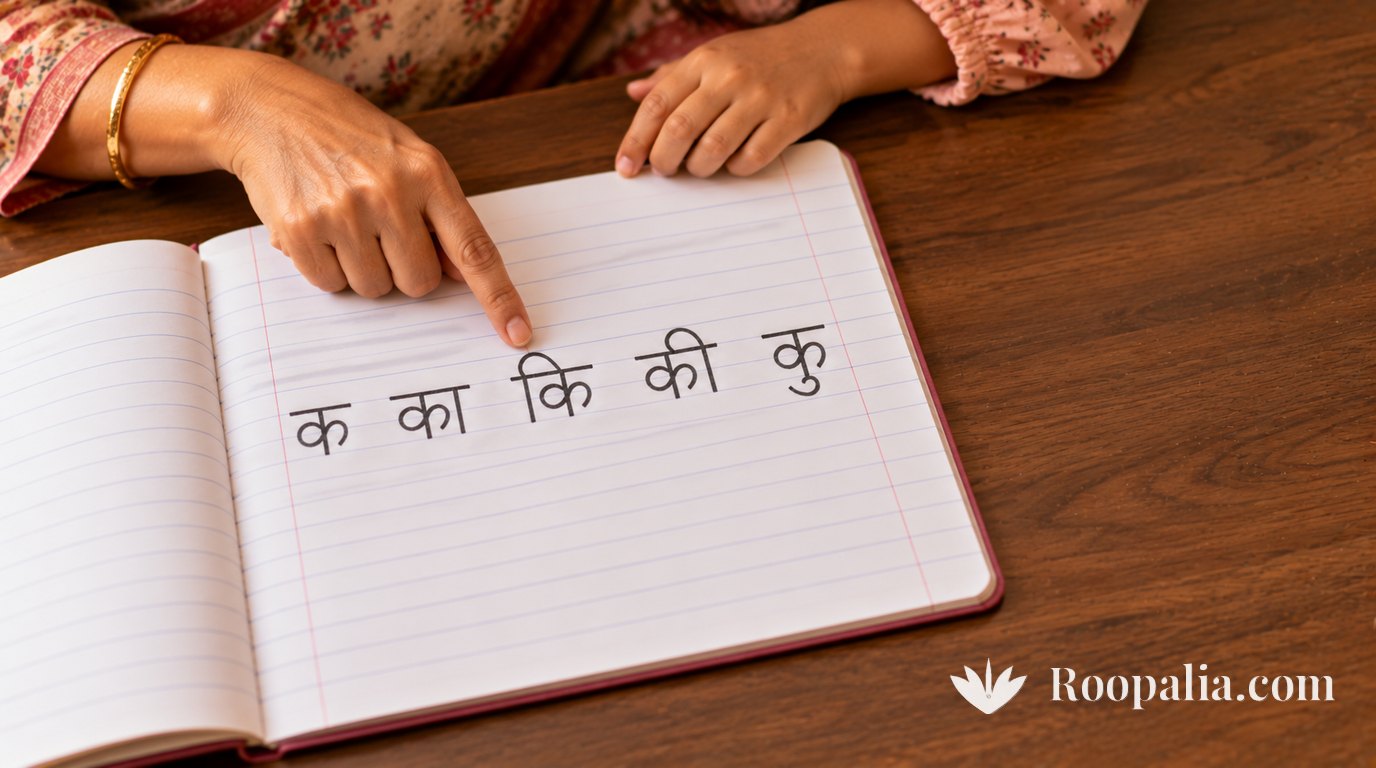 क का कि की कु
Roopalia.com